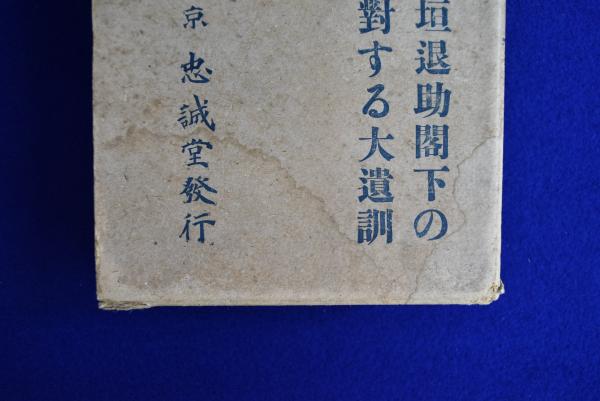 垣退助閣下の
對する大遺訓
京 忠誠堂發行